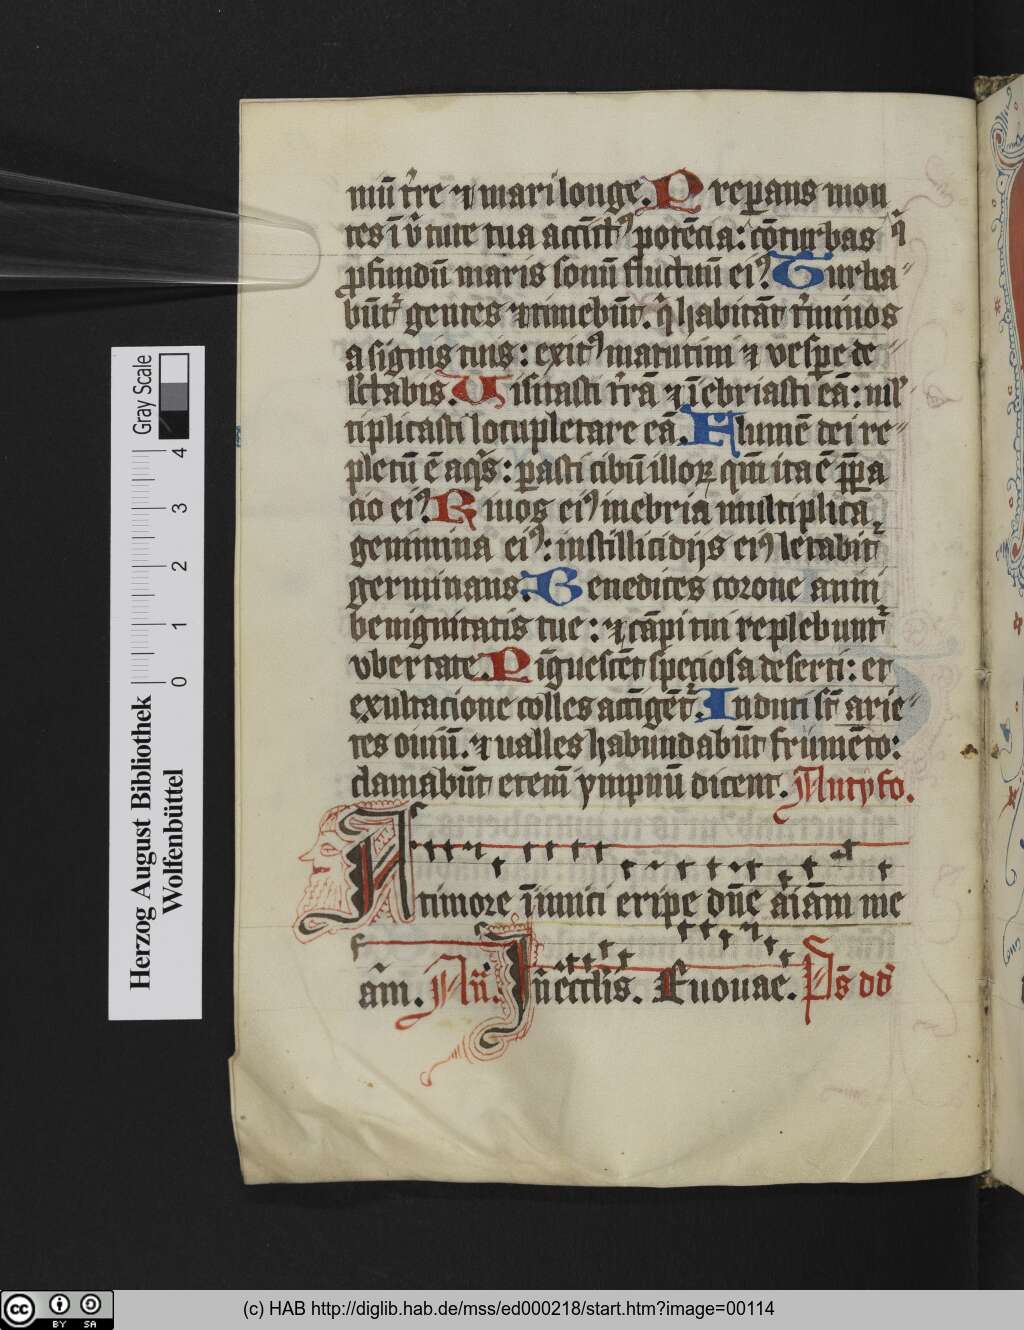 mū t͛re ⁊ mari longe. Preparans mon
tes ī v͛tute tua accīctꝰ potēcia: cōturbas q̄
ꝓfundū maris sonū fluctuū eiꝰ. Turba
būt͛ gentes ⁊ timebūt. q̄ habitāt t͛minos
a signis tuis: exitꝰ matutini ⁊ vespe de
lc̄tabis. Uisitasti t͛rā ⁊ īebriasti eā: ml̓
tiplicasti locupletare eā. Flumē dei re
pletū ē aq̄s: parasti cibū illoꝝ qm̄ ita ē p̄pa
cio eiꝰ. Riuos eiꝰ inebria multiplica
genimina eiꝰ: in stillicidijs eiꝰ letabit͛
germinans. Benedices corone anni
benignitatis tue: ⁊ cāpi tui replebunt͛
vbertate. Pīguescēt speciosa deserti: et
exultacione colles accīgēt͛. Induti sūt arie
tes ouiū. ⁊ ualles habundabūt frumēto:
clamabūt etem̄ ympnū dicent. Antyfo.
A timore īimici eripe dn̄e aīam me
am. An̄. In ecc̄lis. Euouae. Ps̄ dd
Herzog August Bibliothek
Wolfenbüttel
Gray Scale
0 1 2 3 4
cc BY SA
(c) HAB http://diglib.hab.de/mss/ed000218/start.htm?image=00114